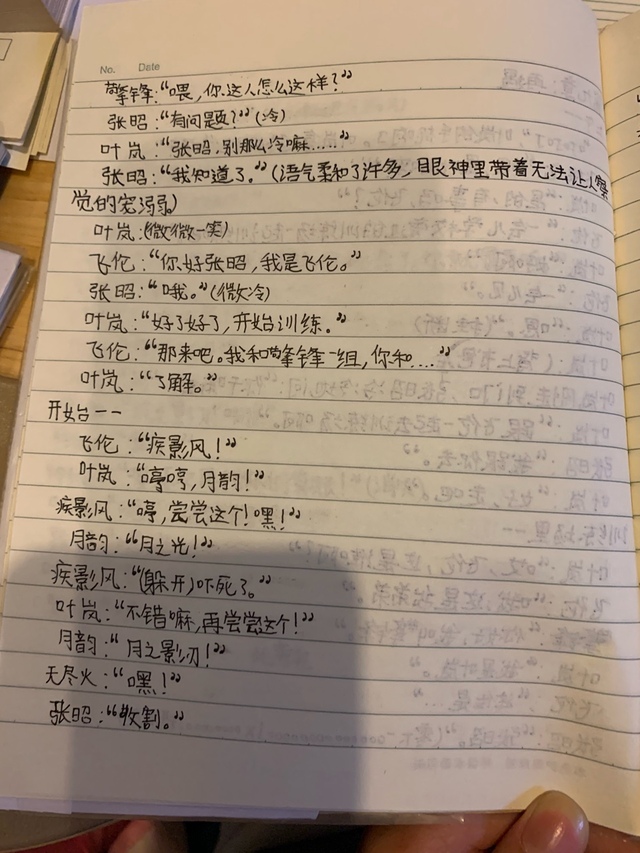 No. Date
擎锋:“喂,你这人怎么这样?”
张昭:“有问题?”(冷)
叶岚:“张昭,别那么冷嘛……”
张昭:“我知道了。”(语气柔和了许多,眼神里带着无法让人察
觉的宠溺。)
叶岚:(微微一笑)
飞伦:“你好张昭,我是飞伦。”
张昭:“哦。”(微冷)
叶岚:“好了好了,开始训练。”
飞伦:“那来吧。我和擎锋一组,你和....”
叶岚:“了解。”
开始台——
飞伦:“疾影风!”
叶岚:“哼哼,月韵!”
疾影风:“哼,尝尝这个!嘿!”
月韵:“月之光!”
疾影风:“(躲开)吓死了。”
叶岚:“不错嘛,再尝尝这个!”
月韵:“月之影刃!”
无尽火:“嘿!”
张昭:“收割。”